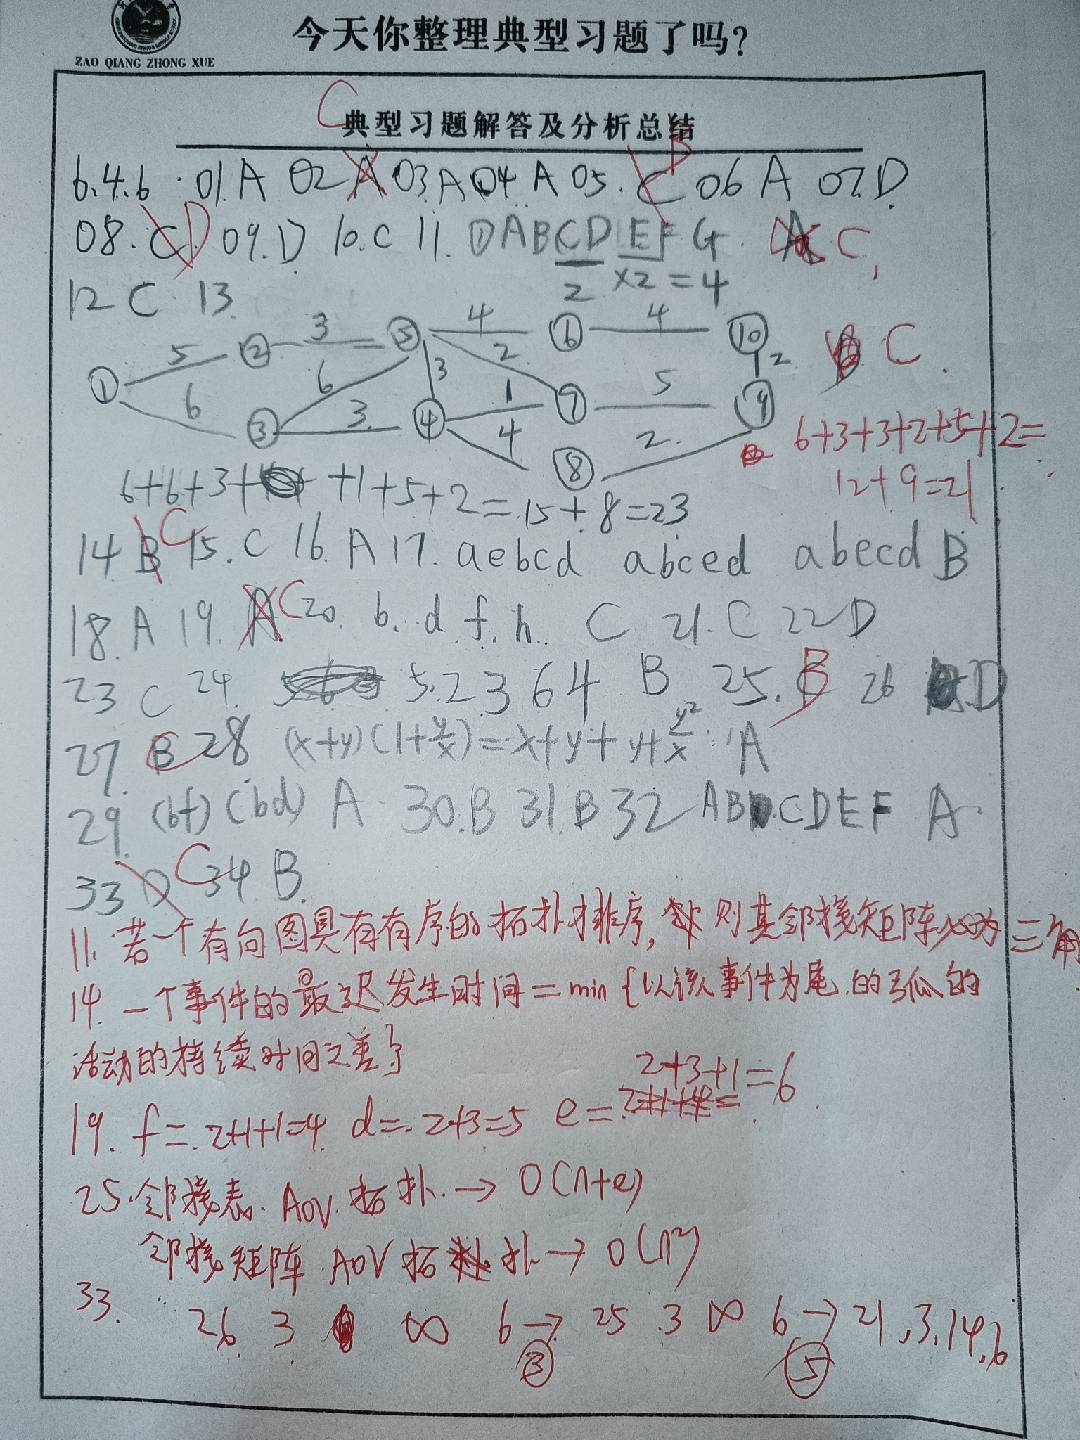 今天你整理典型习题了吗?
ZAO QIANG ZHONG XUE
典型习题解答及分析总结
6.4.6 01 A 02 A C 03 A 04 A 05. C B 06 A 07. D
08. C D 09. D 10. C 11. ① ABCD EF G. A C
2 ×2=4
12 C 13.
① 5 ② 3 ⑤ 4 ⑥ 4 ⑩ B C.
6 ③ 6 3. ④ 3 2 1 4 ⑦ 5 ⑨ 2
⑧ 2.
6+3+3+2+5+2=
12+9=21
6+6+3+ +1+5+2=15+8=23
14 B C 15. C 16. A 17. aebcd abced abecd B
18. A 19. A C 20. b. d f. h. C 21. C 22 D
23 C 24. 5. 2 3 6 4 B 25. B 26 D
27. B 28 (x+y)(1+y/x)=x+y+y+y²/x A
29. (bf) (bd) A 30. B 31. B 32 AB CDEF A.
33 D C 34 B.
11. 若一个有向图具有有序的拓扑排序, 则其邻接矩阵必为三角
14. 一个事件的最迟发生时间=min{以该事件为尾的弧的
活动的持续时间之差}
19. f=2+1+1=4 d=2+3=5 e= 2+3+1=6
25. 邻接表. AOV. 拓扑. → O(n+e)
邻接矩阵 AOV 拓扑→ O(n²)
33. 26 3 ∞ 6 → 25 3 ∞ 6 → 21, 3, 14, 6
③ ⑤